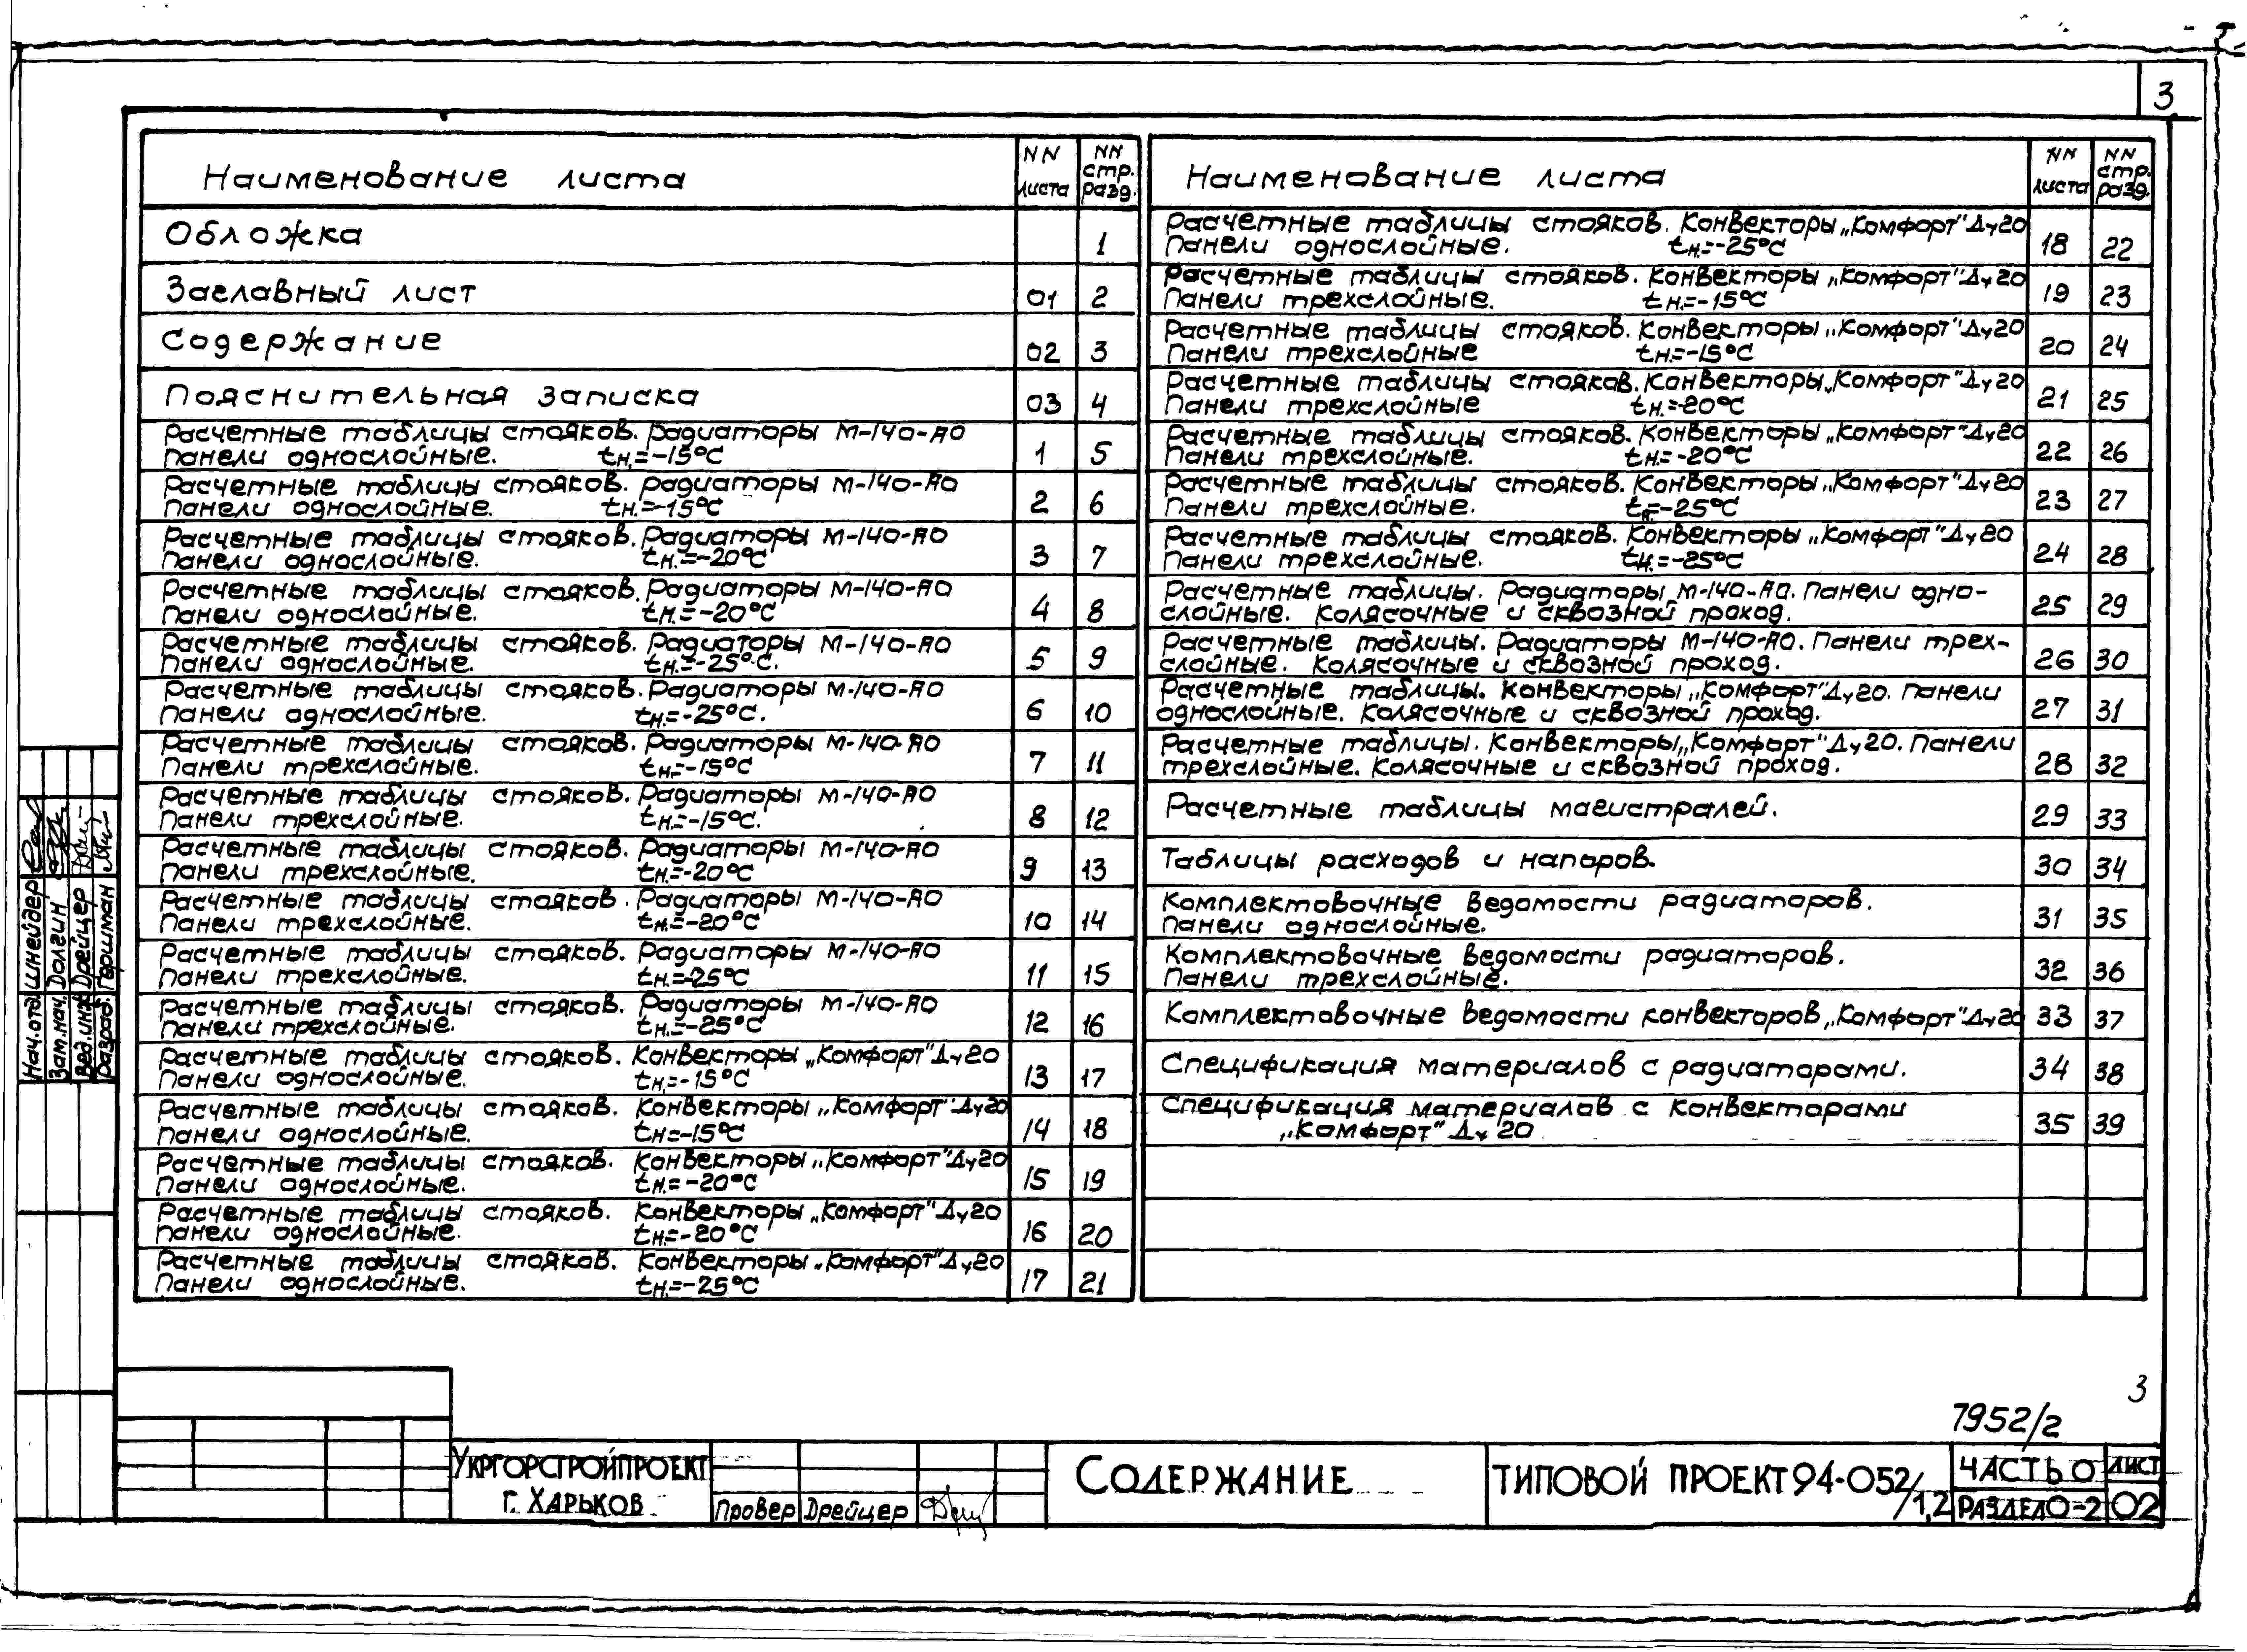 3
Наименование листа
NN листа
NN стр. разд.
Обложка 1
Заглавный лист 01 2
Содержание 02 3
Пояснительная записка 03 4
Расчетные таблицы стояков. Радиаторы М-140-АО
Панели однослойные. tн.=-15°С 1 5
Расчетные таблицы стояков. Радиаторы М-140-АО
Панели однослойные. tн.=-15°С 2 6
Расчетные таблицы стояков. Радиаторы М-140-АО
Панели однослойные. tн.=-20°С 3 7
Расчетные таблицы стояков. Радиаторы М-140-АО
Панели однослойные. tн.=-20°С 4 8
Расчетные таблицы стояков. Радиаторы М-140-АО
Панели однослойные. tн.=-25°С. 5 9
Расчетные таблицы стояков. Радиаторы М-140-АО
Панели однослойные. tн.=-25°С. 6 10
Расчетные таблицы стояков. Радиаторы М-140-АО
Панели трехслойные. tн.=-15°С 7 11
Расчетные таблицы стояков. Радиаторы М-140-АО
Панели трехслойные. tн.=-15°С. 8 12
Расчетные таблицы стояков. Радиаторы М-140-АО
Панели трехслойные. tн.=-20°С 9 13
Расчетные таблицы стояков. Радиаторы М-140-АО
Панели трехслойные. tн.=-20°С 10 14
Расчетные таблицы стояков. Радиаторы М-140-АО
Панели трехслойные. tн.=-25°С 11 15
Расчетные таблицы стояков. Радиаторы М-140-АО
Панели трехслойные. tн.=-25°С 12 16
Расчетные таблицы стояков. Конвекторы „Комфорт" Ду20
Панели однослойные. tн.=-15°С 13 17
Расчетные таблицы стояков. Конвекторы „Комфорт" Ду20
Панели однослойные. tн=-15°С 14 18
Расчетные таблицы стояков. Конвекторы „Комфорт" Ду20
Панели однослойные. tн.=-20°С 15 19
Расчетные таблицы стояков. Конвекторы „Комфорт" Ду20
Панели однослойные. tн=-20°С 16 20
Расчетные таблицы стояков. Конвекторы „Комфорт" Ду20
Панели однослойные. tн.=-25°С 17 21
Наименование листа
NN листа
NN стр. разд.
Расчетные таблицы стояков. Конвекторы „Комфорт" Ду20
Панели однослойные. tн.=-25°С 18 22
Расчетные таблицы стояков. Конвекторы „Комфорт" Ду20
Панели трехслойные. tн.=-15°С 19 23
Расчетные таблицы стояков. Конвекторы „Комфорт" Ду20
Панели трехслойные tн.=-15°С 20 24
Расчетные таблицы стояков. Конвекторы „Комфорт" Ду20
Панели трехслойные tн.=-20°С 21 25
Расчетные таблицы стояков. Конвекторы „Комфорт" Ду20
Панели трехслойные. tн.=-20°С 22 26
Расчетные таблицы стояков. Конвекторы „Комфорт" Ду20
Панели трехслойные. tн.=-25°С 23 27
Расчетные таблицы стояков. Конвекторы „Комфорт" Ду20
Панели трехслойные. tн.=-25°С 24 28
Расчетные таблицы. Радиаторы М-140-АО. Панели одно-
слойные. Колясочные и сквозной проход. 25 29
Расчетные таблицы. Радиаторы М-140-АО. Панели трех-
слойные. Колясочные и сквозной проход. 26 30
Расчетные таблицы. Конвекторы „Комфорт" Ду20. Панели
однослойные. Колясочные и сквозной проход. 27 31
Расчетные таблицы. Конвекторы „Комфорт" Ду20. Панели
трехслойные. Колясочные и сквозной проход. 28 32
Расчетные таблицы магистралей. 29 33
Таблицы расходов и напоров. 30 34
Комплектовочные ведомости радиаторов.
Панели однослойные. 31 35
Комплектовочные ведомости радиаторов.
Панели трехслойные. 32 36
Комплектовочные ведомости конвекторов „Комфорт" Ду20 33 37
Спецификация материалов с радиаторами. 34 38
Спецификация материалов с конвекторами
„Комфорт" Ду 20 35 39
Нач.отд. Шнейдер
Зам.нач. Долгин
Вед.инж Дрейцер
Разраб. Горшман
3
7952/2
Укргорстройпроект
г. Харьков
Провер Дрейцер
Содержание
Типовой проект 94-052/1,2
Часть 0
Раздел 0-2
Лист
02